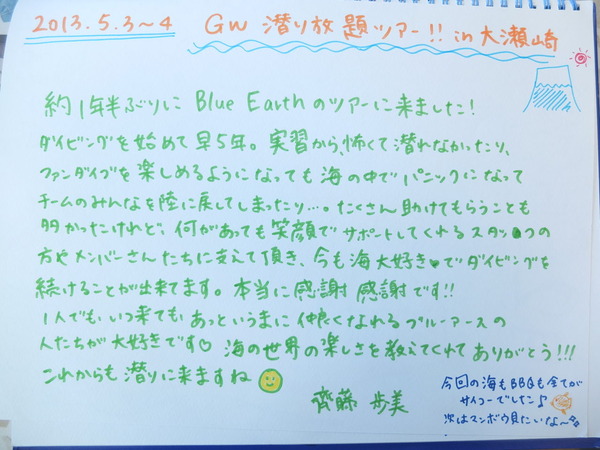 2013.5.3〜4 GW 潜り放題ツアー!! in 大瀬崎
約1年半ぶりに Blue Earthのツアーに来ました!
ダイビングを始めて早5年。実習から、怖くて潜れなかったり、
ファンダイブを楽しめるようになっても海の中でパニックになって
チームのみんなを陸に戻してしまったり…。たくさん助けてもらうことも
多かったけれど、何があっても笑顔でサポートしてくれるスタッフの
方やメンバーさんたちに支えて頂き、今も海大好き♥でダイビングを
続けることが出来てます。本当に感謝 感謝です!!
1人でも、いつ来ても、あっというまに仲良くなれるブルーアースの
人たちが大好きです♡ 海の世界の楽しさを教えてくれてありがとう!!!
これからも潜りに来ますね
齊藤 歩美
今回の海もBBQも全てが
サイコーでした♪
次はマンボウ見たいな〜